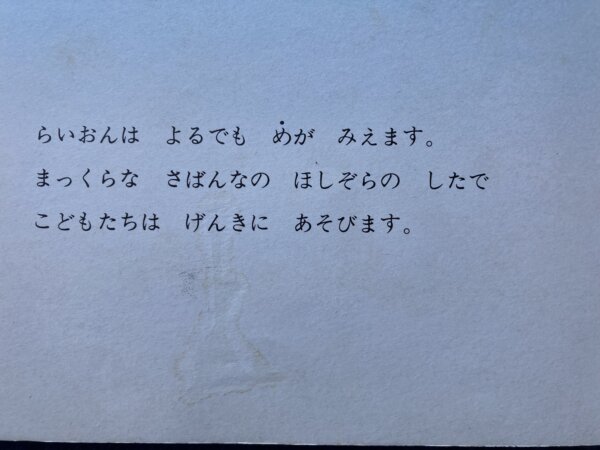 らいおんは　よるでも　めが　みえます。
まっくらな　さばんなの　ほしぞらの　したで
こどもたちは　げんきに　あそびます。